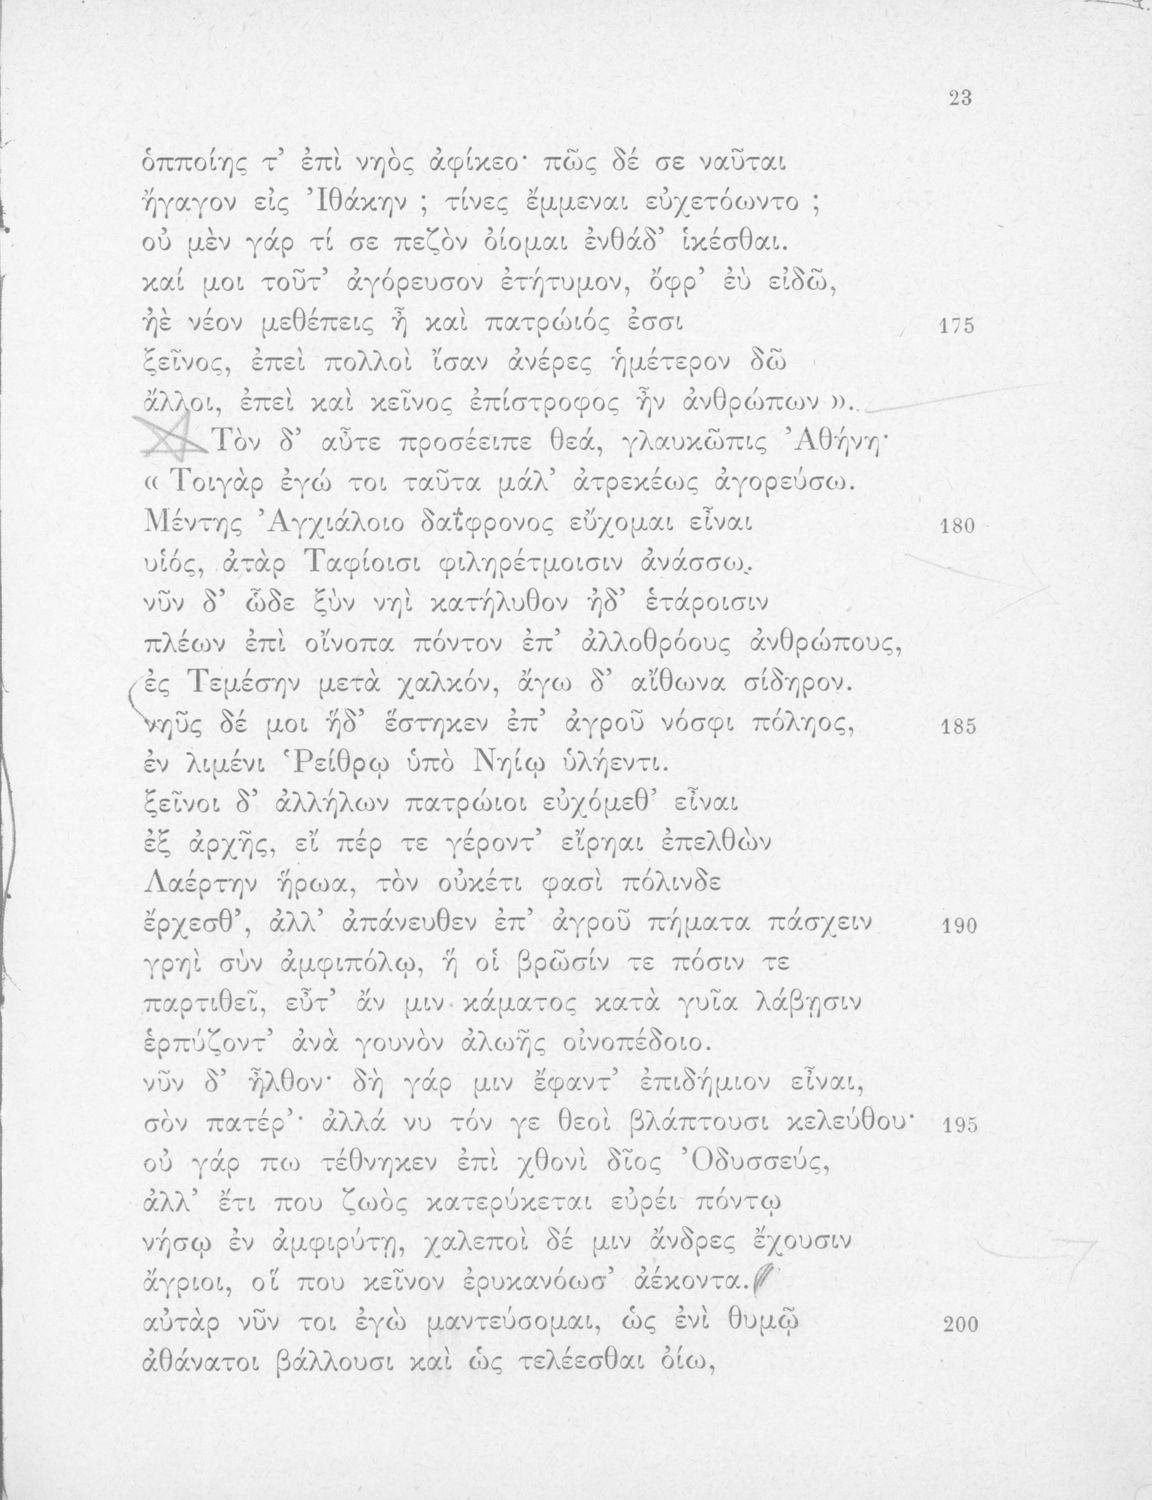 23
ὁπποίης τ’ ἐπὶ νηὸς ἀφίκεο· πῶς δέ σε ναῦται
ἤγαγον εἰς Ἰθάκην ; τίνες ἔμμεναι εὐχετόωντο ;
οὐ μὲν γάρ τί σε πεζὸν ὀίομαι ἐνθάδ’ ἱκέσθαι.
καί μοι τοῦτ’ ἀγόρευσον ἐτήτυμον, ὄφρ’ ἐὺ εἰδῶ,
ἠὲ νέον μεθέπεις ἦ καὶ πατρώιός ἐσσι 175
ξεῖνος, ἐπεὶ πολλοὶ ἴσαν ἀνέρες ἡμέτερον δῶ
ἄλλοι, ἐπεὶ καὶ κεῖνος ἐπίστροφος ἦν ἀνθρώπων ».
Τὸν δ’ αὖτε προσέειπε θεά, γλαυκῶπις Ἀθήνη·
« Τοιγὰρ ἐγώ τοι ταῦτα μάλ’ ἀτρεκέως ἀγορεύσω.
Μέντης Ἀγχιάλοιο δαΐφρονος εὔχομαι εἶναι 180
υἱός, ἀτὰρ Ταφίοισι φιληρέτμοισιν ἀνάσσω.
νῦν δ’ ὧδε ξὺν νηὶ κατήλυθον ἠδ’ ἑτάροισιν
πλέων ἐπὶ οἴνοπα πόντον ἐπ’ ἀλλοθρόους ἀνθρώπους,
ἐς Τεμέσην μετὰ χαλκόν, ἄγω δ’ αἴθωνα σίδηρον.
νηῦς δέ μοι ἥδ’ ἕστηκεν ἐπ’ ἀγροῦ νόσφι πόληος, 185
ἐν λιμένι Ῥείθρῳ ὑπὸ Νηίῳ ὑλήεντι.
ξεῖνοι δ’ ἀλλήλων πατρώιοι εὐχόμεθ’ εἶναι
ἐξ ἀρχῆς, εἴ πέρ τε γέροντ’ εἴρηαι ἐπελθὼν
Λαέρτην ἥρωα, τὸν οὐκέτι φασὶ πόλινδε
ἔρχεσθ’, ἀλλ’ ἀπάνευθεν ἐπ’ ἀγροῦ πήματα πάσχειν 190
γρηὶ σὺν ἀμφιπόλῳ, ἥ οἱ βρῶσίν τε πόσιν τε
παρτιθεῖ, εὖτ’ ἄν μιν κάματος κατὰ γυῖα λάβῃσιν
ἑρπύζοντ’ ἀνὰ γουνὸν ἀλωῆς οἰνοπέδοιο.
νῦν δ’ ἦλθον· δὴ γάρ μιν ἔφαντ’ ἐπιδήμιον εἶναι,
σὸν πατέρ’· ἀλλά νυ τόν γε θεοὶ βλάπτουσι κελεύθου· 195
οὐ γάρ πω τέθνηκεν ἐπὶ χθονὶ δῖος Ὀδυσσεύς,
ἀλλ’ ἔτι που ζωὸς κατερύκεται εὐρέι πόντῳ
νήσῳ ἐν ἀμφιρύτῃ, χαλεποὶ δέ μιν ἄνδρες ἔχουσιν
ἄγριοι, οἵ που κεῖνον ἐρυκανόωσ’ ἀέκοντα.
αὐτὰρ νῦν τοι ἐγὼ μαντεύσομαι, ὡς ἐνὶ θυμῷ 200
ἀθάνατοι βάλλουσι καὶ ὡς τελέεσθαι ὀίω,